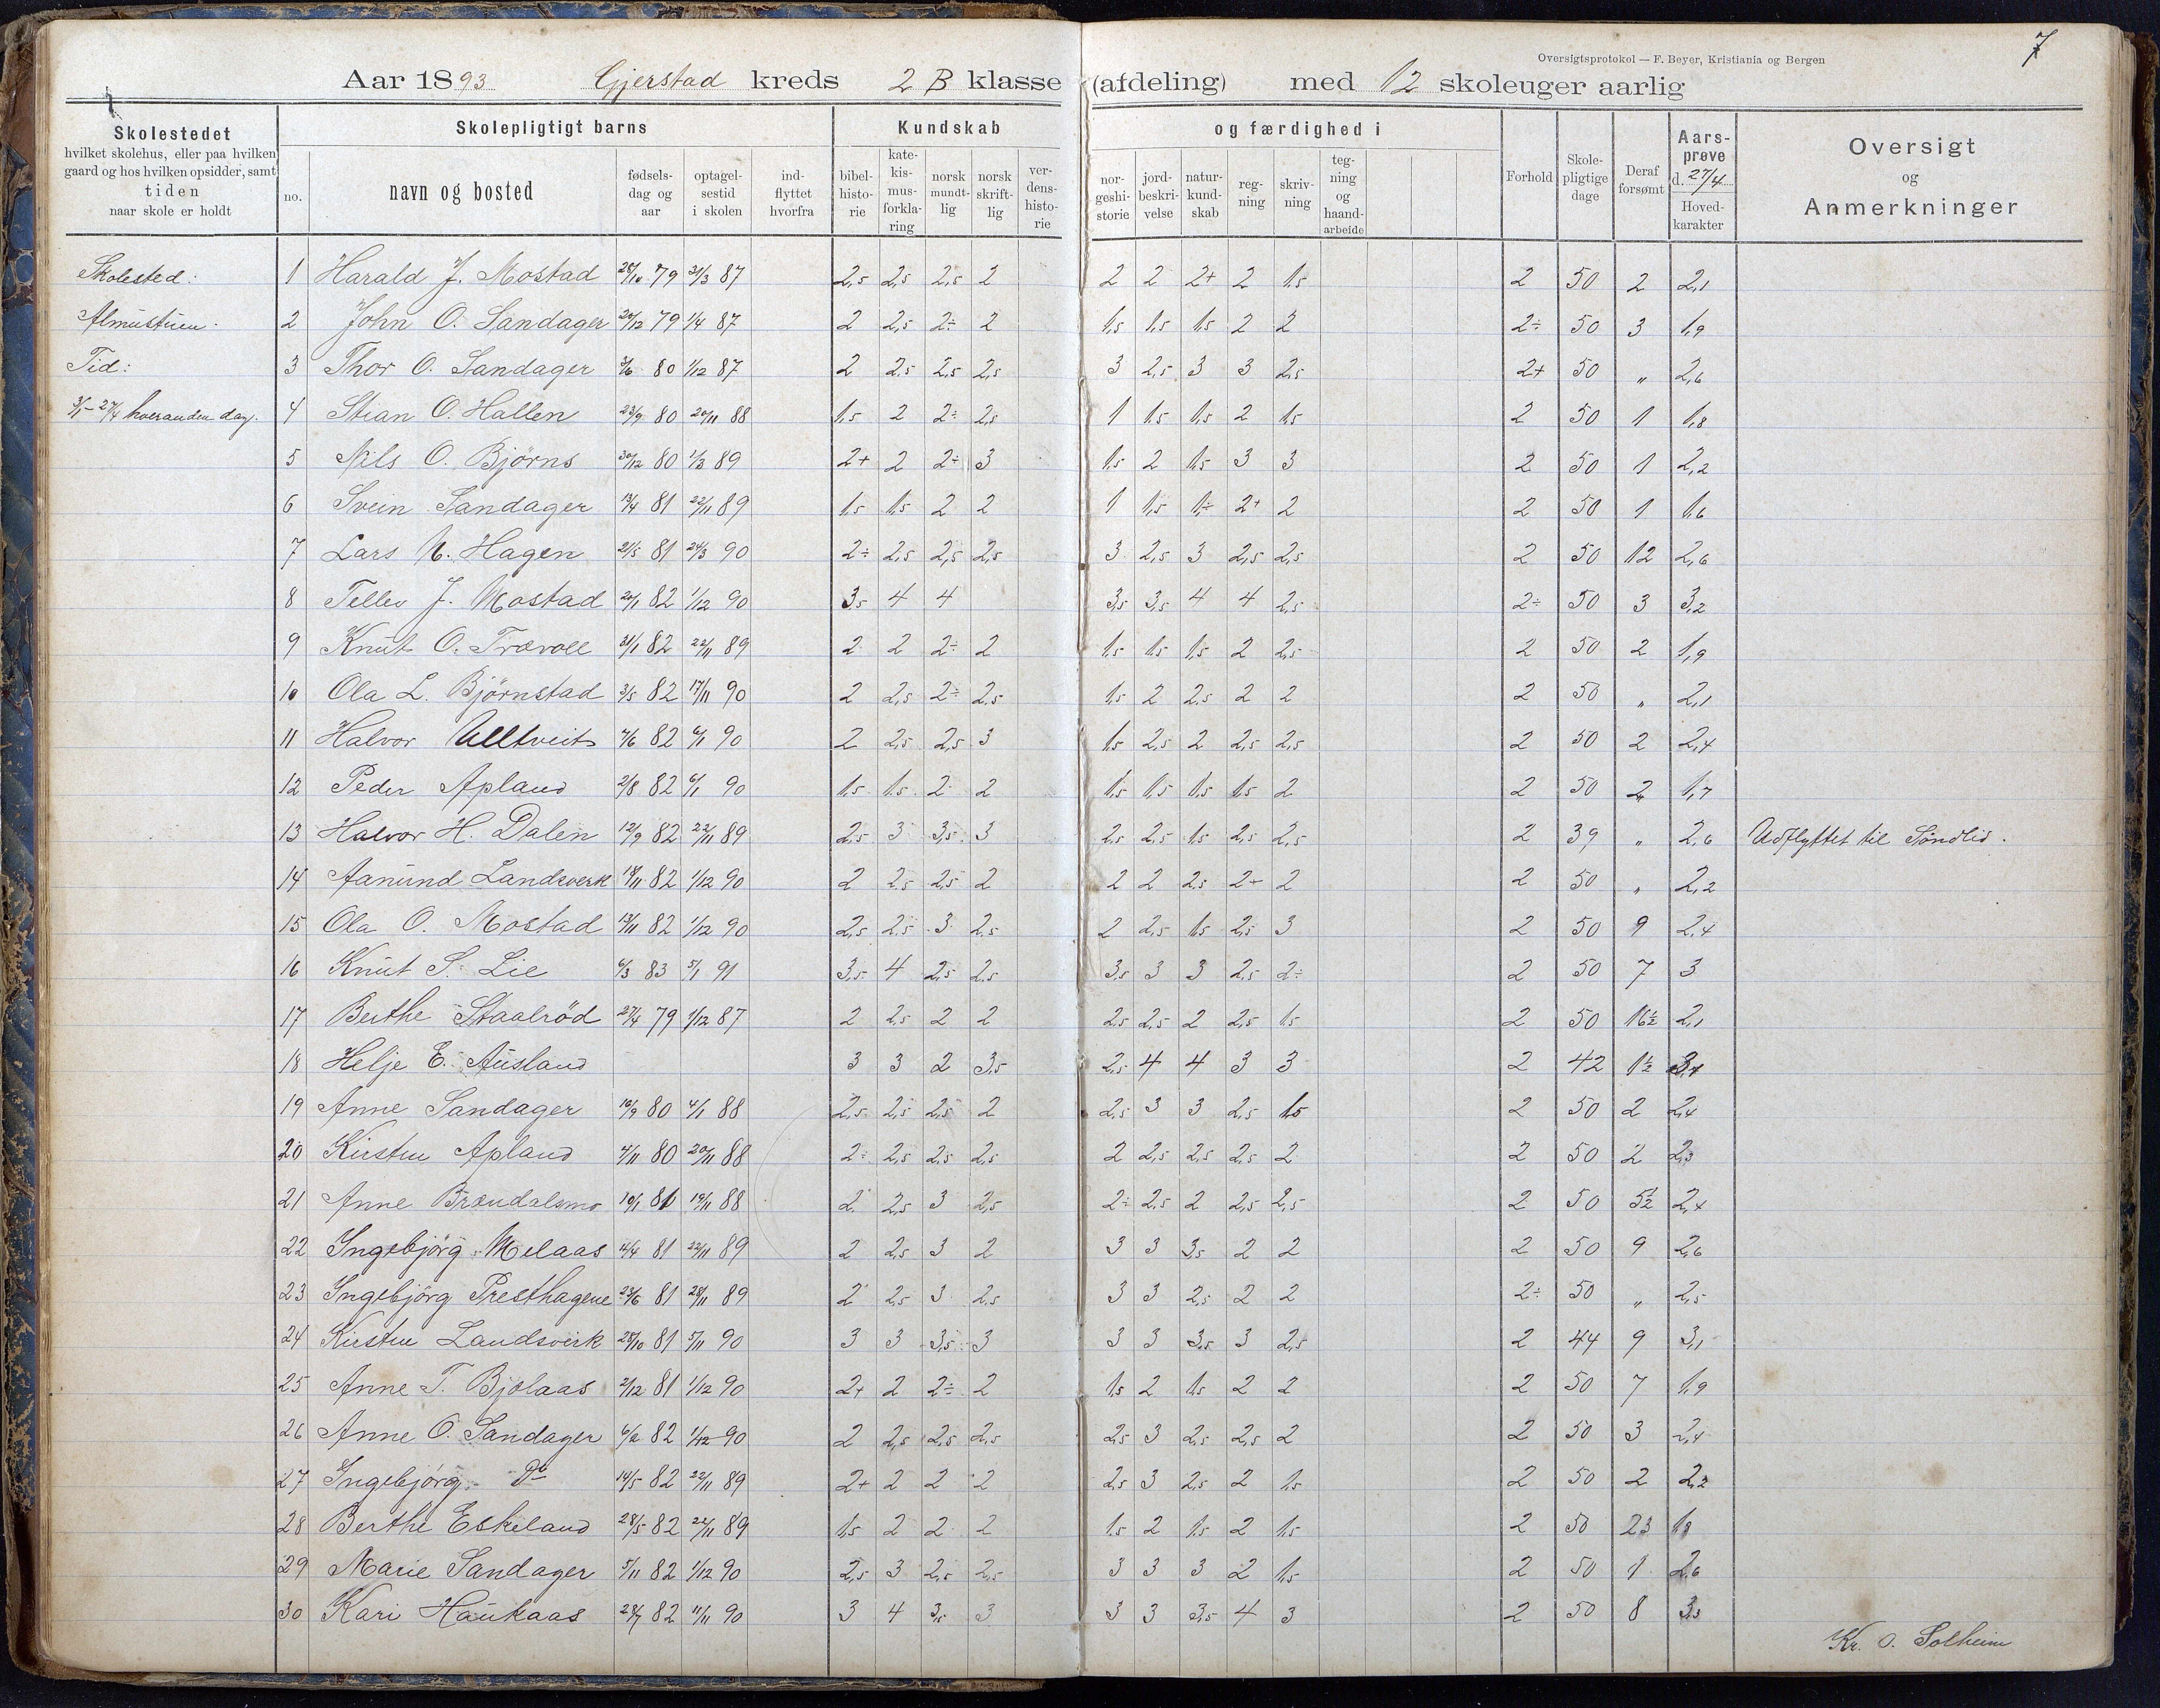 7
Oversigtsprotokol — F. Beyer, Kristiania og Bergen
Aar 1893 Gjerstad kreds 2 B klasse (afdeling) med 12 skoleuger aarlig
Skolestedet hvilket skolehus, eller paa hvilken gaard og hos hvilken opsidder, samt tiden naar skole er holdt
Skolepligtigt barns
no. navn og bosted fødselsdag og aar optagelsestid i skolen indflyttet hvorfra
Kundskab og færdighed i
bibelhistorie katekismusforklaring norsk mundtlig norsk skriftlig verdenshistorie norgeshistorie jordbeskrivelse naturkundskab regning skrivning tegning og haandarbeide
Forhold Skolepligtige dage Deraf forsømt Aarsprøve d. 27/4 Hovedkarakter
Oversigt og Anmerkninger
Skolested: 1 Harald J. Mostad 28/10 79 31/3 87 2,5 2,5 2,5 2 2 2 2+ 2 1,5 2 50 2 2,1
Almustuen. 2 John O. Sandager 20/12 79 1/4 87 2 2,5 2÷ 2 1,5 1,5 1,5 2 2 2÷ 50 3 1,9
Tid: 3 Thor O. Sandager 3/6 80 1/12 87 2 2,5 2,5 2,5 3 2,5 3 3 2,5 2+ 50 " 2,6
3/1-27/4 hveranden dag. 4 Stian O. Hallen 23/9 80 20/11 88 1,5 2 2÷ 2,5 1 1,5 1,5 2 1,5 2 50 1 1,8
5 Nils O. Bjørns 30/12 80 1/3 89 2+ 2 2÷ 3 1,5 2 1,5 3 3 2 50 1 2,2
6 Svein Sandager 13/4 81 22/11 89 1,5 1,5 2 2 1 1,5 1÷ 2+ 2 2 50 1 1,6
7 Lars N. Hagen 21/5 81 24/3 90 2÷ 2,5 2,5 2,5 3 2,5 3 2,5 2,5 2 50 12 2,6
8 Tellev J. Mostad 20/1 82 1/12 90 3,5 4 4 3,5 3,5 4 4 2,5 2÷ 50 3 3,2
9 Knut O. Trævoll 31/1 82 22/11 89 2 2 2÷ 2 1,5 1,5 1,5 2 2,5 2 50 2 1,9
10 Ola L. Bjørnstad 3/5 82 17/11 90 2 2,5 2÷ 2,5 1,5 2 2,5 2 2 2 50 " 2,1
11 Halvor Ulltveit 7/6 82 6/1 90 2 2,5 2,5 3 1,5 2,5 2 2,5 2,5 2 50 2 2,4
12 Peder Apland 2/8 82 6/1 90 1,5 1,5 2 2 1,5 1,5 1,5 1,5 2 2 50 2 1,7
13 Halvor H. Dalen 12/9 82 22/11 89 2,5 3 3,5 3 2,5 2,5 1,5 2,5 2,5 2 39 " 2,6 Udflyttet til Søndlid.
14 Aanund Landsverk 18/11 82 1/12 90 2 2,5 2,5 2 2 2 2,5 2+ 2 2 50 " 2,2
15 Ola O. Mostad 13/11 82 1/12 90 2,5 2,5 3 2,5 2 2,5 1,5 2,5 3 2 50 9 2,4
16 Knut S. Lie 6/3 83 5/1 91 3,5 4 2,5 2,5 3,5 3 3 2,5 2÷ 2 50 7 3
17 Berthe Staalrød 27/4 79 1/12 87 2 2,5 2 2 2,5 2,5 2 2,5 1,5 2 50 16½ 2,1
18 Helje E. Ausland 3 3 2 3,5 2,5 4 4 3 3 2 42 1½
19 Anne Sandager 16/9 80 4/1 88 2,5 2,5 2,5 2 2,5 3 3 2,5 1,5 2 50 2 2,4
20 Kirsten Apland 4/11 80 20/11 88 2÷ 2,5 2,5 2,5 2 2,5 2,5 2,5 2 2 50 2 2,3
21 Anne Brændalsmo 10/1 81 19/11 88 2 2,5 3 2,5 2÷ 2,5 2 2,5 2,5 2 50 5½ 2,4
22 Ingebjørg Melaas 4/4 81 22/11 89 2 2,5 3 2 3 3 3,5 2 2 2 50 9 2,6
23 Ingebjørg Presthagene 23/6 81 28/11 89 2 2,5 3 2,5 3 3 2,5 2 2 2÷ 50 " 2,5
24 Kirsten Landsverk 28/10 81 5/11 90 3 3 3,5 3 3 3 3,5 3 2,5 2 44 9 3,1
25 Anne T. Bjolaas 2/12 81 1/12 90 2+ 2 2÷ 2 1,5 2 1,5 2 2 2 50 7 1,9
26 Anne O. Sandager 6/2 82 1/12 90 2 2,5 2,5 2,5 2,5 3 2,5 2,5 2 2 50 3 2,4
27 Ingebjørg Do 14/5 82 22/11 89 2+ 2 2 2 2,5 3 2,5 2 1,5 2 50 2 2,2
28 Berthe Eskeland 28/5 82 22/11 89 1,5 2 2 2 1,5 2 1,5 2 1,5 2 50 23 1,8
29 Marie Sandager 5/11 82 1/12 90 2,5 3 2,5 2,5 3 3 3 2 1,5 2 50 1 2,6
30 Kari Haukaas 28/7 82 11/11 90 3 4 3,5 3 3 3 3,5 4 3 2 50 8 3,3
Kr. O. Solheim